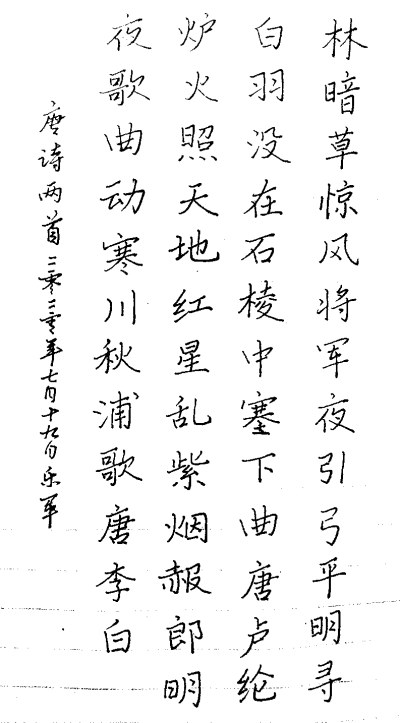 林暗草惊风将军夜引弓平明寻
白羽没在石棱中塞下曲唐卢纶
炉火照天地红星乱紫烟赧郎明
夜歌曲动寒川秋浦歌唐李白
唐诗两首二零二零年七月十九日乐军